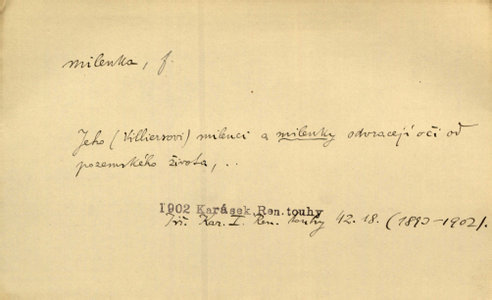 milenka, f.
Jeho (Villiersovi) milenci a milenky odvracejí oči od
pozemského života, ..
1902 Karásek, Ren.touhy
Jiř. Kar. I. Ren. touhy 42.18. (1893-1902).